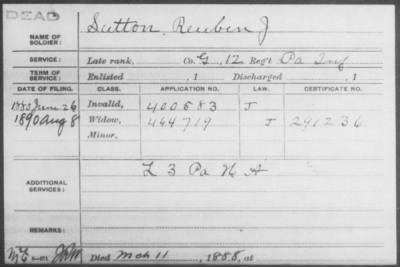 DEAD
NAME OF SOLDIER: Sutton, Reuben J
SERVICE: Late rank, Co. G, 12 Reg't Pa Inf
TERM OF SERVICE: Enlisted , 1 Discharged , 1
DATE OF FILING. CLASS. APPLICATION NO. LAW. CERTIFICATE NO.
1880 June 26 Invalid, 400583 J
1890 Aug 8 Widow, 464719 J 291236
Minor,
ADDITIONAL SERVICES: L 3 Pa H A
REMARKS:
Died Mch 11, 1888, at